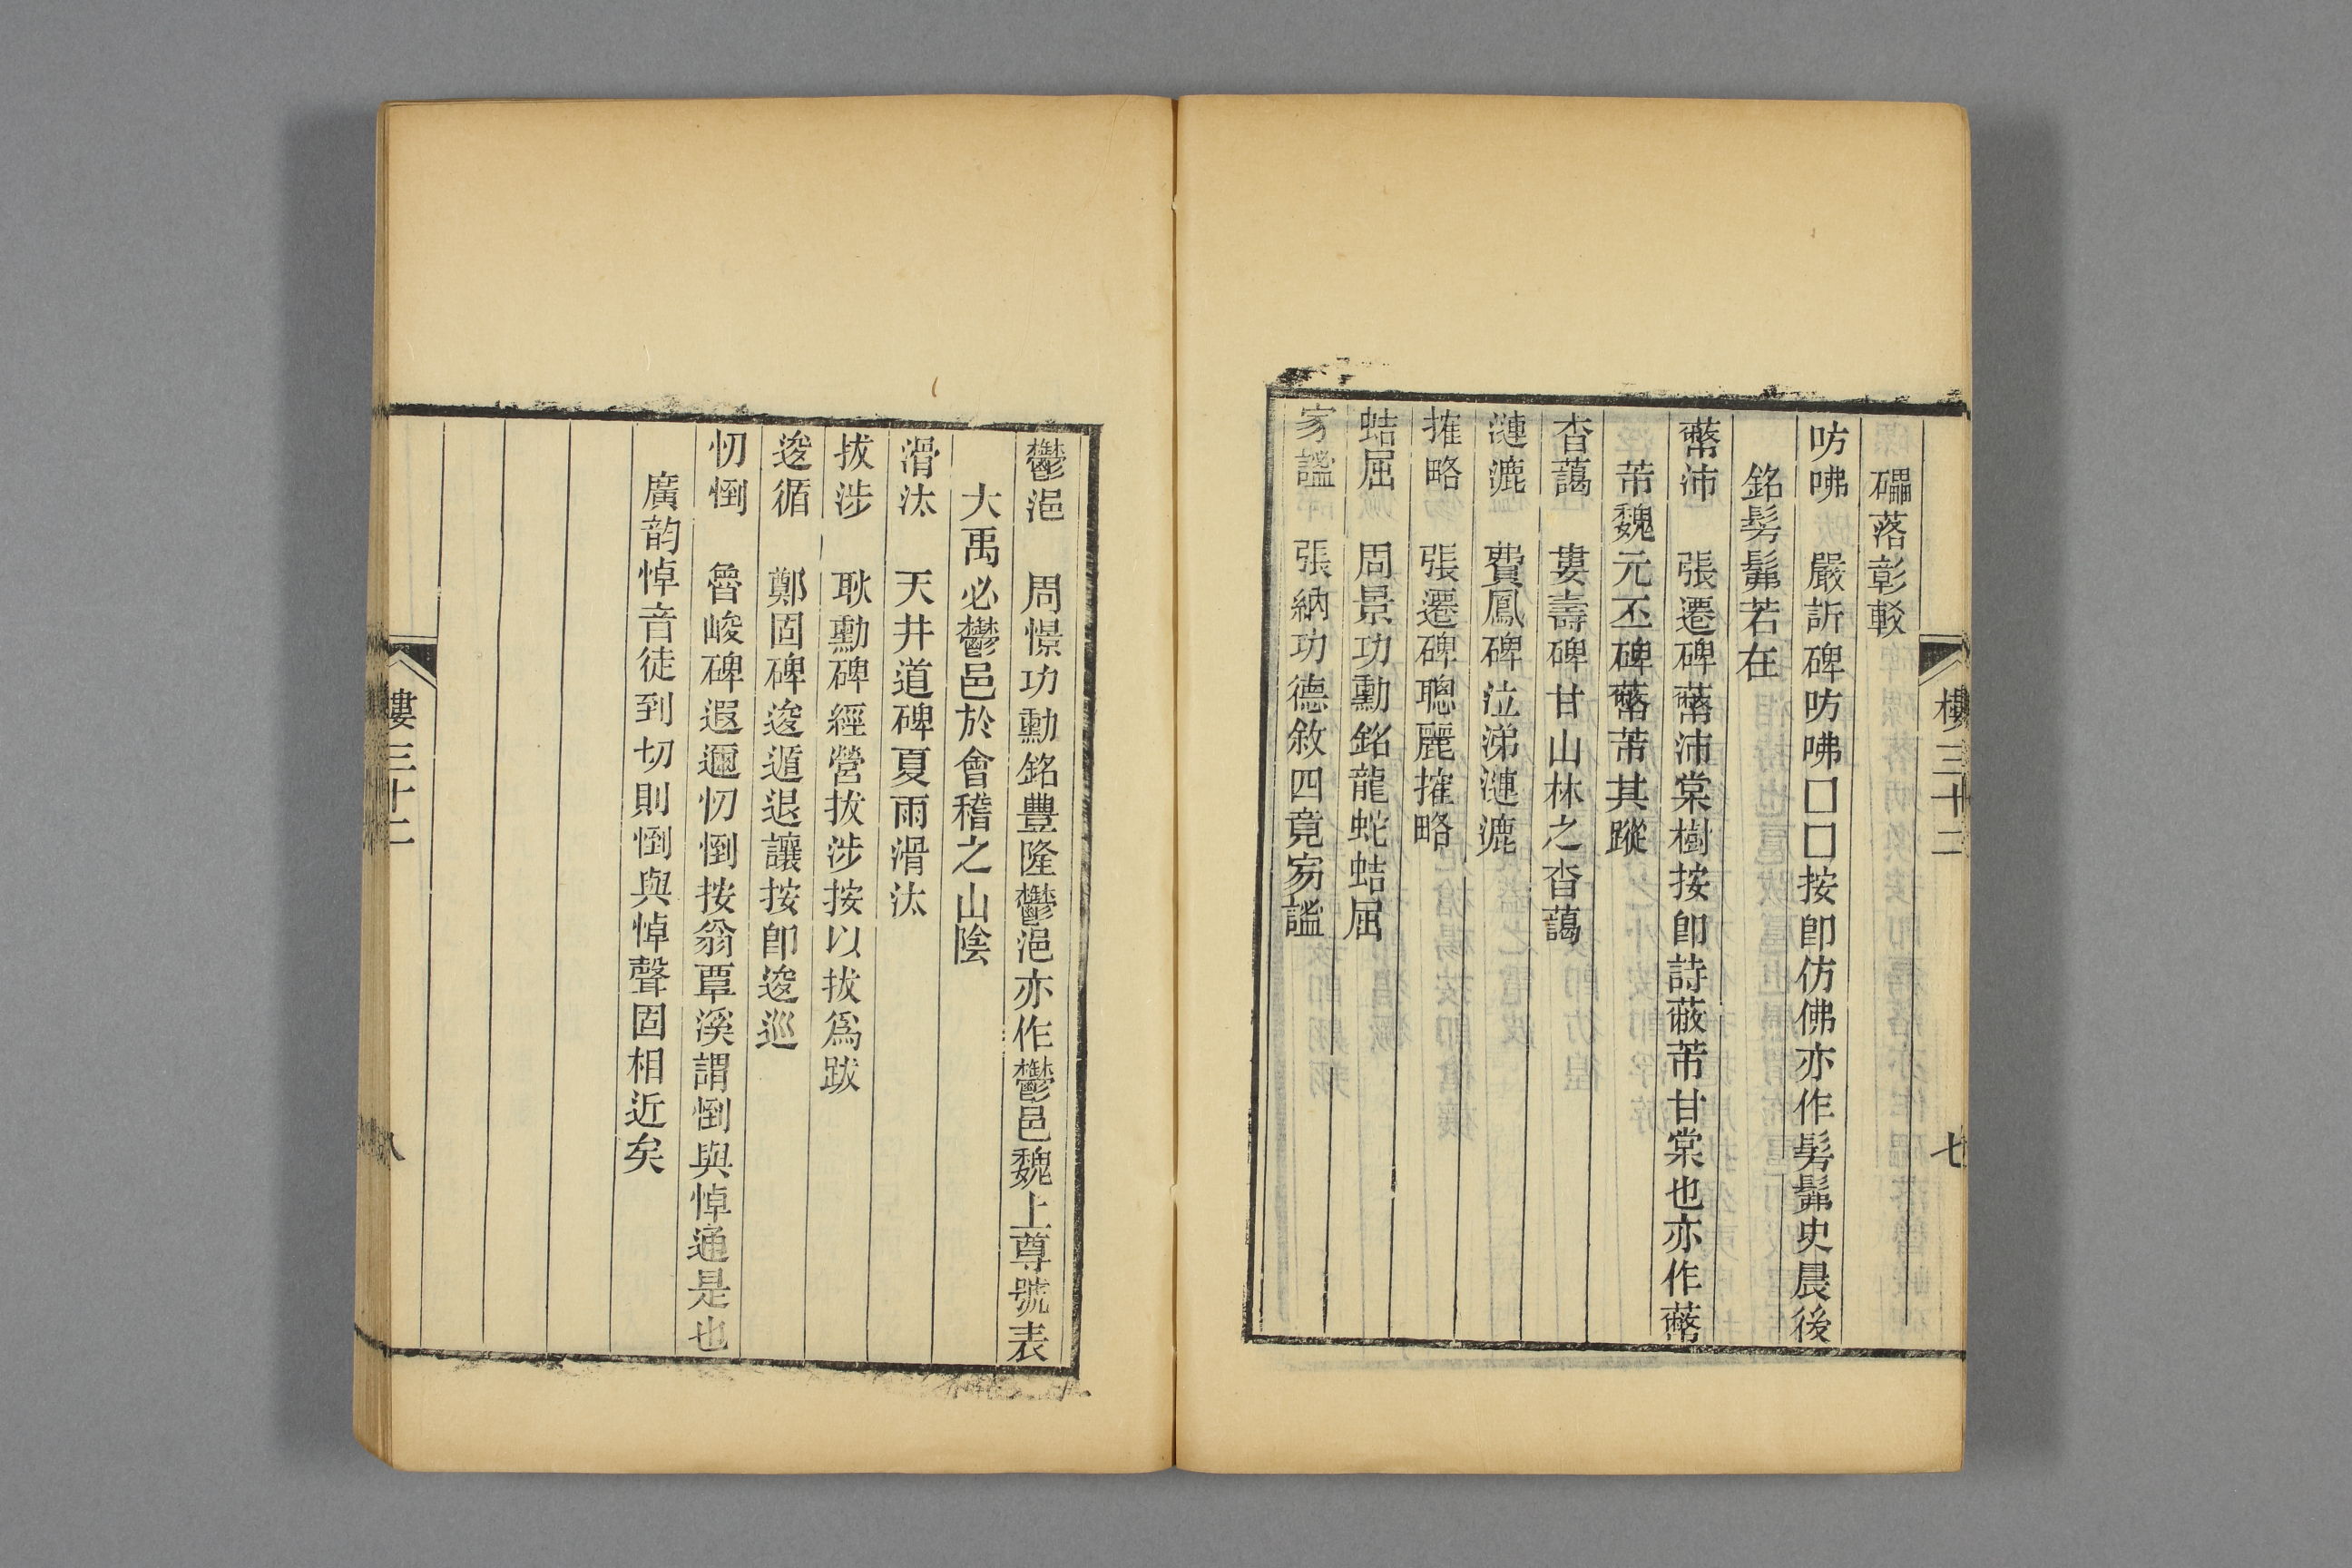 樓三十二
七
礧落彰較
昉咈　嚴訢碑昉咈囗囗按即仿佛亦作髣髴史晨後
銘髣髴若在
蔽沛　張遷碑蔽沛棠樹按即詩蔽芾甘棠也亦作蔽
芾魏元丕碑蔽芾其蹤
杳藹　婁壽碑甘山林之杳藹
漣漉　費鳳碑泣涕漣漉
搉略　張遷碑聰麗搉略
蛣屈　周景功勳銘龍蛇蛣屈
㝑謐　張納功德敘四竟㝑謐
鬱浥　周憬功勳銘豐隆鬱浥亦作鬱邑魏上尊號表
大禹必鬱邑於會稽之山陰
滑汰　天井道碑夏雨滑汰
拔涉　耿勳碑經營拔涉按以拔爲跋
逡循　鄭固碑逡遁退讓按即逡巡
忉倒　魯峻碑遐邇忉倒按翁覃溪謂倒與悼通是也
廣韵悼音徒到切則倒與悼聲固相近矣
樓三十二
八